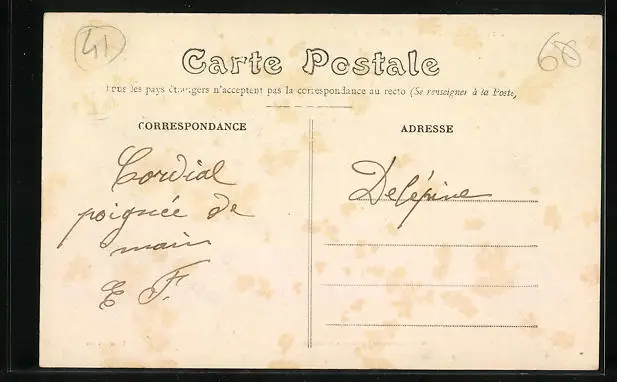 41
68
Carte Postale
Tous les pays étrangers n'acceptent pas la correspondance au recto (Se renseigner à la Poste)
CORRESPONDANCE
ADRESSE
Cordial
poignée de
main
E F.
Delépine